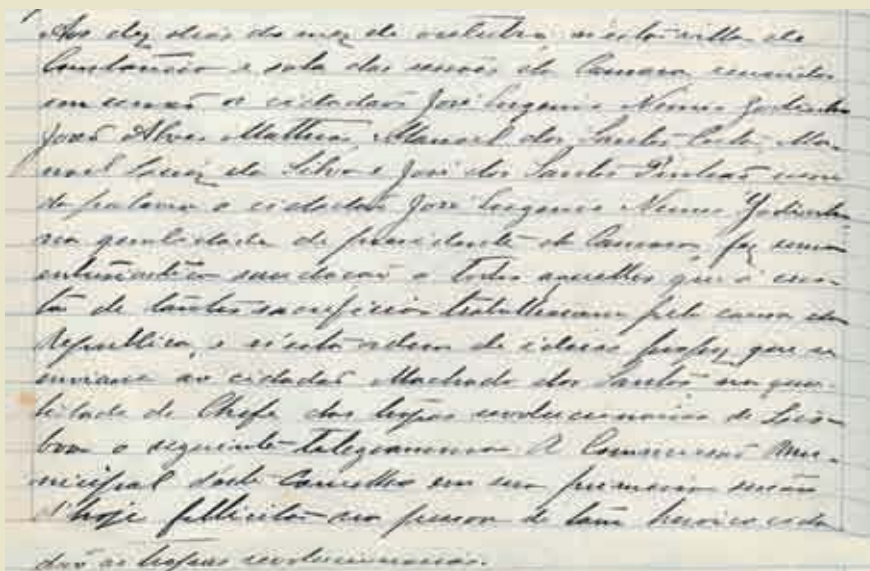 Aos dez dias do mez de outubro n'esta villa de
Constancia e sala das sessões da Camara reunidos
em sessão os cidadãos José Eugenio Nunes Godinho
José Alves Mattheus, Manoel dos Santos Costa, Ma-
noel Luiz da Silva e José dos Santos Pinhão usan
do palavra o cidadão José Eugenio Nunes Godinho
na qualidade de presidente da Camara, faz uma
enthusiastica saudação a todos aquelles que á cus-
ta de tantos sacrificios trabalharam pela causa da
Republica, e n'esta ordem de ideias propoz que se
enviasse ao cidadão Machado dos Santos na qua-
lidade de Chefe das tropas revolucionarias de Lis-
boa o seguinte telegramma A Commissão Mu-
nicipal d'este Concelho em sua primeira sessão
d'hoje felicita na pessoa de tam heroico cida
dão as tropas revolucionarias.